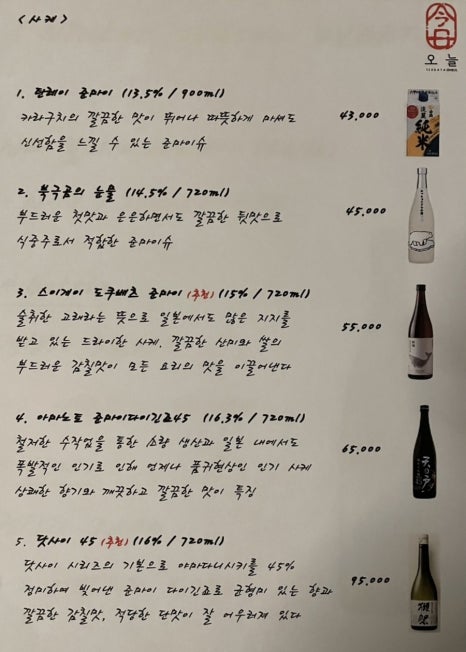 <사케>
今日
오늘
1. 탄레이 준마이 (13.5% / 900ml)
카라구치의 깔끔한 맛이 뛰어나 따뜻하게 마셔도
신선함을 느낄 수 있는 준마이슈
43,000
純米
2. 북극곰의 눈물 (14.5% / 720ml)
부드러운 첫맛과 은은하면서도 깔끔한 뒷맛으로
식중주로서 적합한 준마이슈
45,000
3. 스이게이 도쿠베츠 준마이 (추천) (15% / 720ml)
술취한 고래라는 뜻으로 일본에서도 많은 지지를
받고 있는 드라이한 사케. 깔끔한 산미와 쌀의
부드러운 감칠맛이 모든 요리의 맛을 이끌어낸다
55,000
4. 야마노토 준마이다이긴죠45 (16.3% / 720ml)
철저한 수작업을 통한 소량 생산과 일본 내에서도
폭발적인 인기로 인해 언제나 품귀현상인 인기 사케
상쾌한 향기와 깨끗하고 깔끔한 맛이 특징
65,000
5. 닷사이 45 (추천) (16% / 720ml)
닷사이 시리즈의 기본으로 야마다니시키를 45%
정미하여 빚어낸 준마이 다이긴죠로 균형미 있는 향과
깔끔한 감칠맛, 적당한 단맛이 잘 어우러져 있다
95,000
獺祭